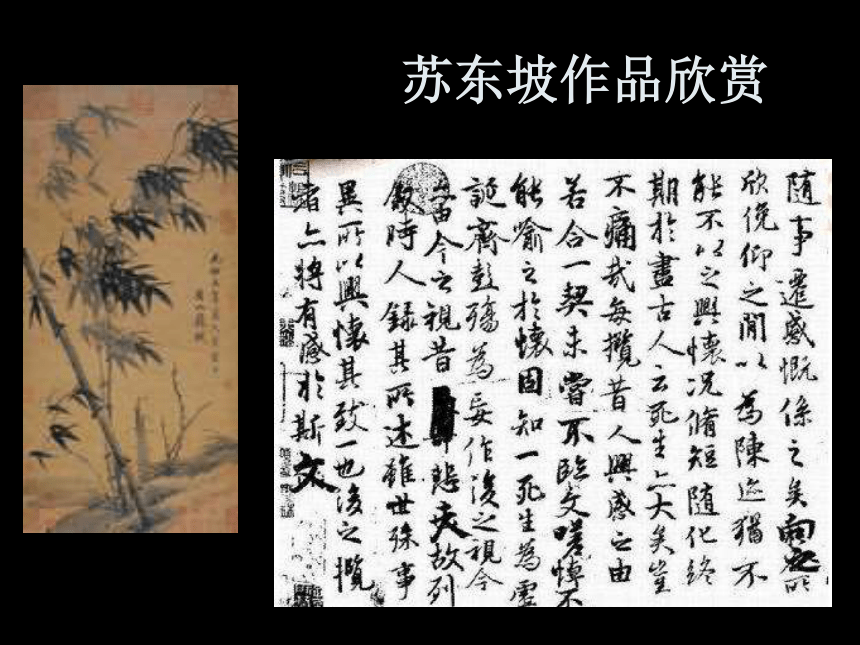 苏东坡作品欣赏
隨事遷感慨係之矣向之所
欣俛仰之閒以為陳迹猶不
能不以之興懷况脩短隨化終
期於盡古人云死生亦大矣豈
不痛哉每攬昔人興感之由
若合一契未嘗不臨文嗟悼不
能喻之於懷固知一死生為虛
誕齊彭殤為妄作後之視今
亦由今之視昔悲夫故列
敘時人錄其所述雖世殊事
異所以興懷其致一也後之攬
者亦將有感於斯文